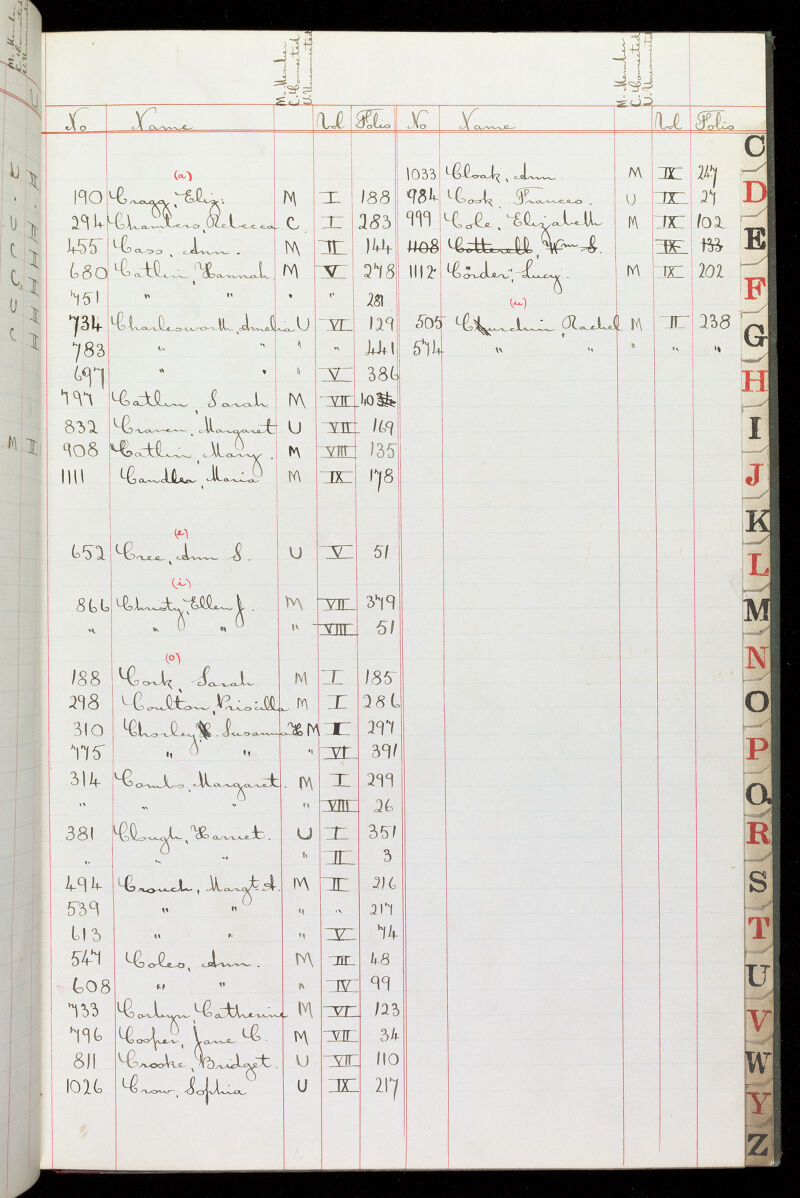 M. Member
C. Connected
U. Unconnected
No Name Vol Folio
(a)
190 Cragg, Eliz: M I 188
294 Chambers, Rebecca C. I 283
455 Cass, Ann. M II 144
680 Catlin, Hannah M V 278
751 " " " " 281
734 Charlesworth, Amelia U VI 129
783 " " " " 441
697 " " " V 386
797 Catlin, Sarah M VII 403
832 Craven, Margaret U VII 169
908 Catlin, Mary. M VIII 135
1111 Candler, Maria M IX 178
(e)
652 Cree, Ann S. U V 51
(i)
866 Christy, Ellen J. M VII 379
" " " " VIII 51
(o)
188 Cork, Sarah M I 185
298 Coulton, Priscilla M I 286
310 Chorley, Susanna M I 297
775 " " " VI 391
314 Combs, Margaret. M I 299
" " " " VIII 26
381 Clough, Harriet. U I 351
" " " " II 3
494 Crouch, Margt A. M II 216
539 " " " " 217
613 " " " V 74
547 Coles, Ann. M III 48
608 " " " IV 99
733 Corbyn, Catherine M VI 123
796 Cooper, Jane C. M VII 34
811 Crooke, Bridget. U VII 110
1026 Crow, Sophia U IX 217
M. Member
C. Connected
U. Unconnected
No Name Vol Folio
1033 Cloak, Ann. M IX 247
984 Cook, Frances. U IX 27
999 Cole, Elizabeth M IX 102
1108 Cotterell, Wm S. IX 133
1112 Corder, Lucy. M IX 202
(u)
505 Churchin, Rachel M II 238
574 " " " " "
C
D
E
F
G
H
I
J
K
L
M
N
O
P
Q
R
S
T
U
V
W
Y
Z